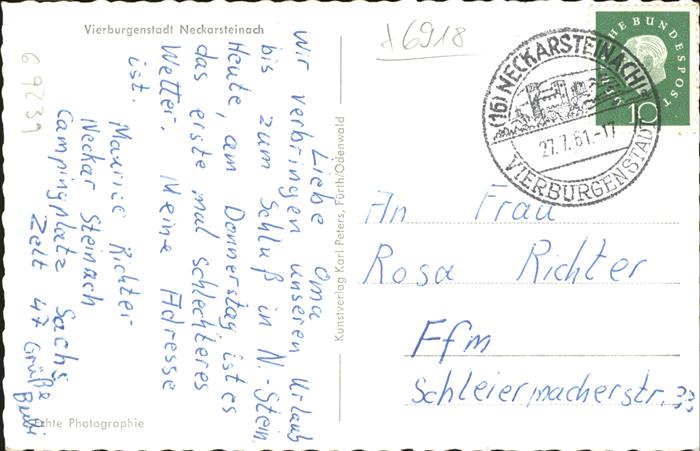 Vierburgenstadt Neckarsteinach
Liebe Oma
Wir verbringen unseren Urlaub
bis zum Schluß in N.-Stein.
Heute, am Donnerstag ist es
das erste mal schlechteres
Wetter. Meine Adresse
ist.
Maurice Richter
Neckar Steinach
Campingplatz Sachs
Zelt 47 Grüße
Bubi
Echte Photographie
69239
Kunstverlag Karl Peters, Fürth/Odenwald
+6918
(16) NECKARSTEINACH
27.7.61.-17
VIERBURGENSTADT
DEUTSCHE BUNDESPOST
10
An Frau
Rosa Richter
Ffm
Schleiermacherstr. ??